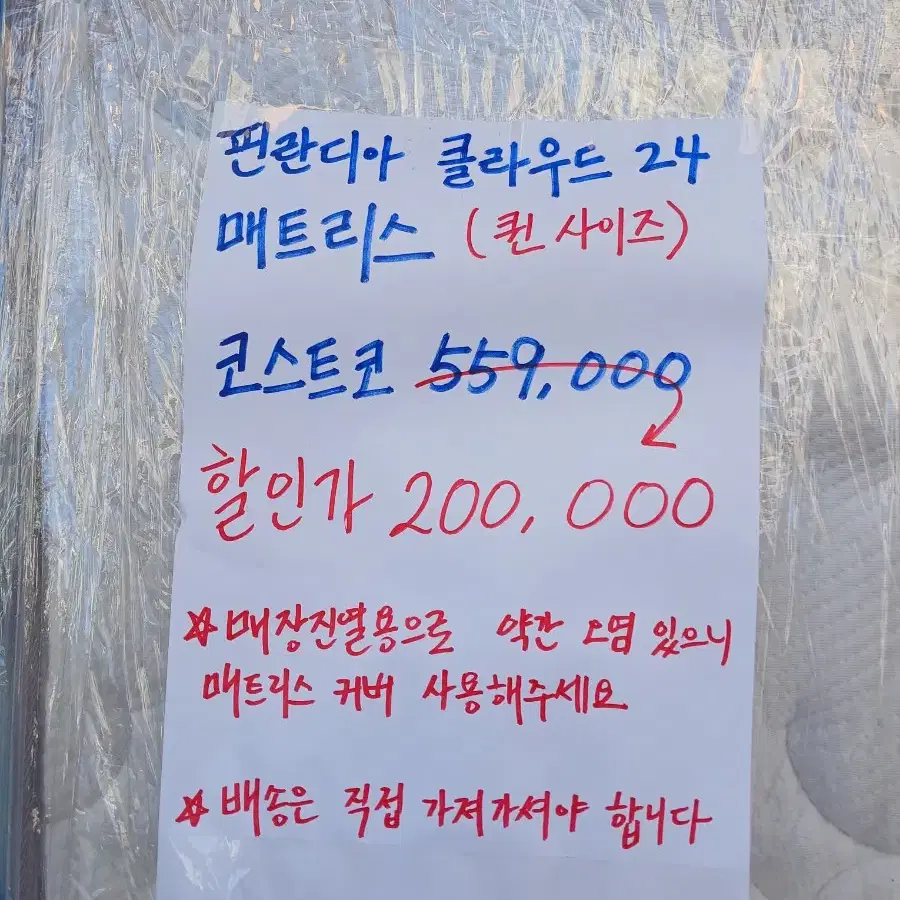 핀란디아 클라우드 24
매트리스 (퀸 사이즈)
코스트코 559,000
할인가 200,000
☆ 매장진열용으로 약간 오염 있으니
매트리스 커버 사용해주세요
☆ 배송은 직접 가져가셔야 합니다